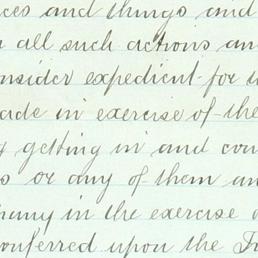 ces and things and
all such actions an
onsider expedient for
ade in exercise of the
getting in and con
s or any of them an
pany in the exercise
onferred upon the